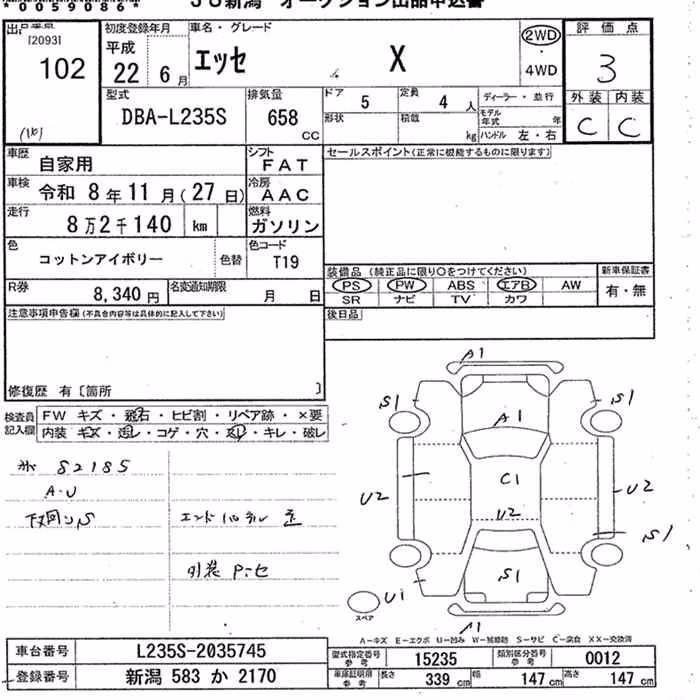 *0059086*
JU新潟 オークション出品申込書
出品番号
[2093]
102
初度登録年月
平成
22 6 月
車名・グレード
エッセ X
2WD
・
4WD
評価点
3
型式
DBA-L235S
排気量
658 CC
ドア 5
定員 4 人
形状
積載 kg
ディーラー・並行
モデル年式 年
ハンドル 左・右
外装 内装
C C
車歴
自家用
シフト
FAT
セールスポイント(正常に機能するものに限ります)
車検
令和 8年 11月(27日)
冷房
AAC
走行
8万2千140 km
燃料
ガソリン
色
コットンアイボリー
色替
色コード
T19
装備品 (純正品に限り○をつけてください)
PS PW ABS エアB AW
SR ナビ TV カワ
新車保証書
有・無
R券
8,340 円
名変通知期限
月 日
注意事項申告欄(不具合内容等は具体的に記入して下さい)
後日品
修復歴 有〔箇所 〕
検査員
記入欄
FW キズ・飛石・ヒビ割・リペア跡・×要
内装 キズ・汚レ・コゲ・穴・スレ・キレ・破レ
82185
A-U
下回りS
エンドパネル 歪
外装 P.セ
A1
S1
S1
A1
U2
C1
U2
U2
S1
S1
U1
スペア
A1
A-キズ E-エクボ U-凹み W-補修跡 S-サビ C-腐食 XX-交換済
車台番号
L235S-2035745
登録番号
新潟 583 か 2170
型式指定番号
参考
15235
類別区分番号
参考
0012
車庫証明用
参考
長さ 339 cm
幅 147 cm
高さ 147 cm